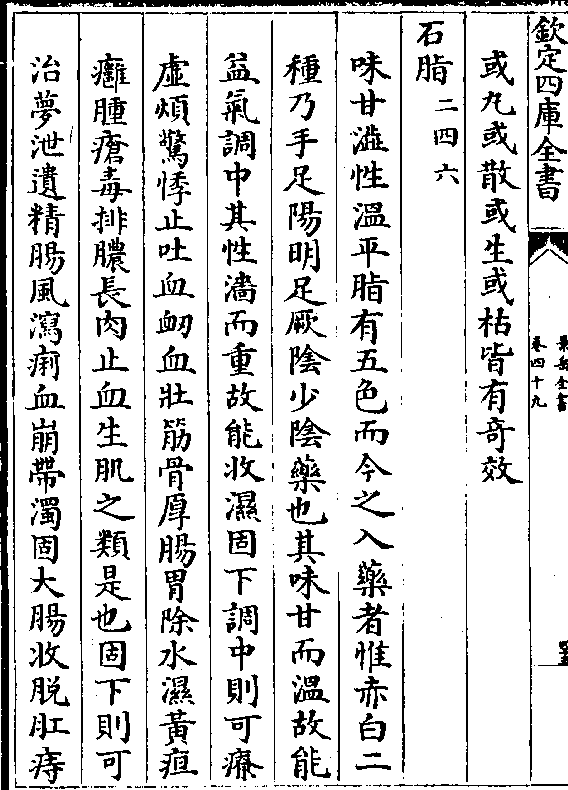 欽定四庫全書
景岳全書
卷四十九
或丸或散或生或枯皆有奇效
石脂二四六
味甘澁性溫平脂有五色而今之入藥者惟赤白二
種乃手足陽明足厥陰少陰藥也其味甘而溫故能
益氣調中其性濇而重故能收濕固下調中則可療
虛煩驚悸止吐血衂血壯筋骨厚腸胃除水濕黃疸
癰腫瘡毒排膿長肉止血生肌之類是也固下則可
治夢泄遺精腸風瀉痢血崩帶濁固大腸收脫肛痔